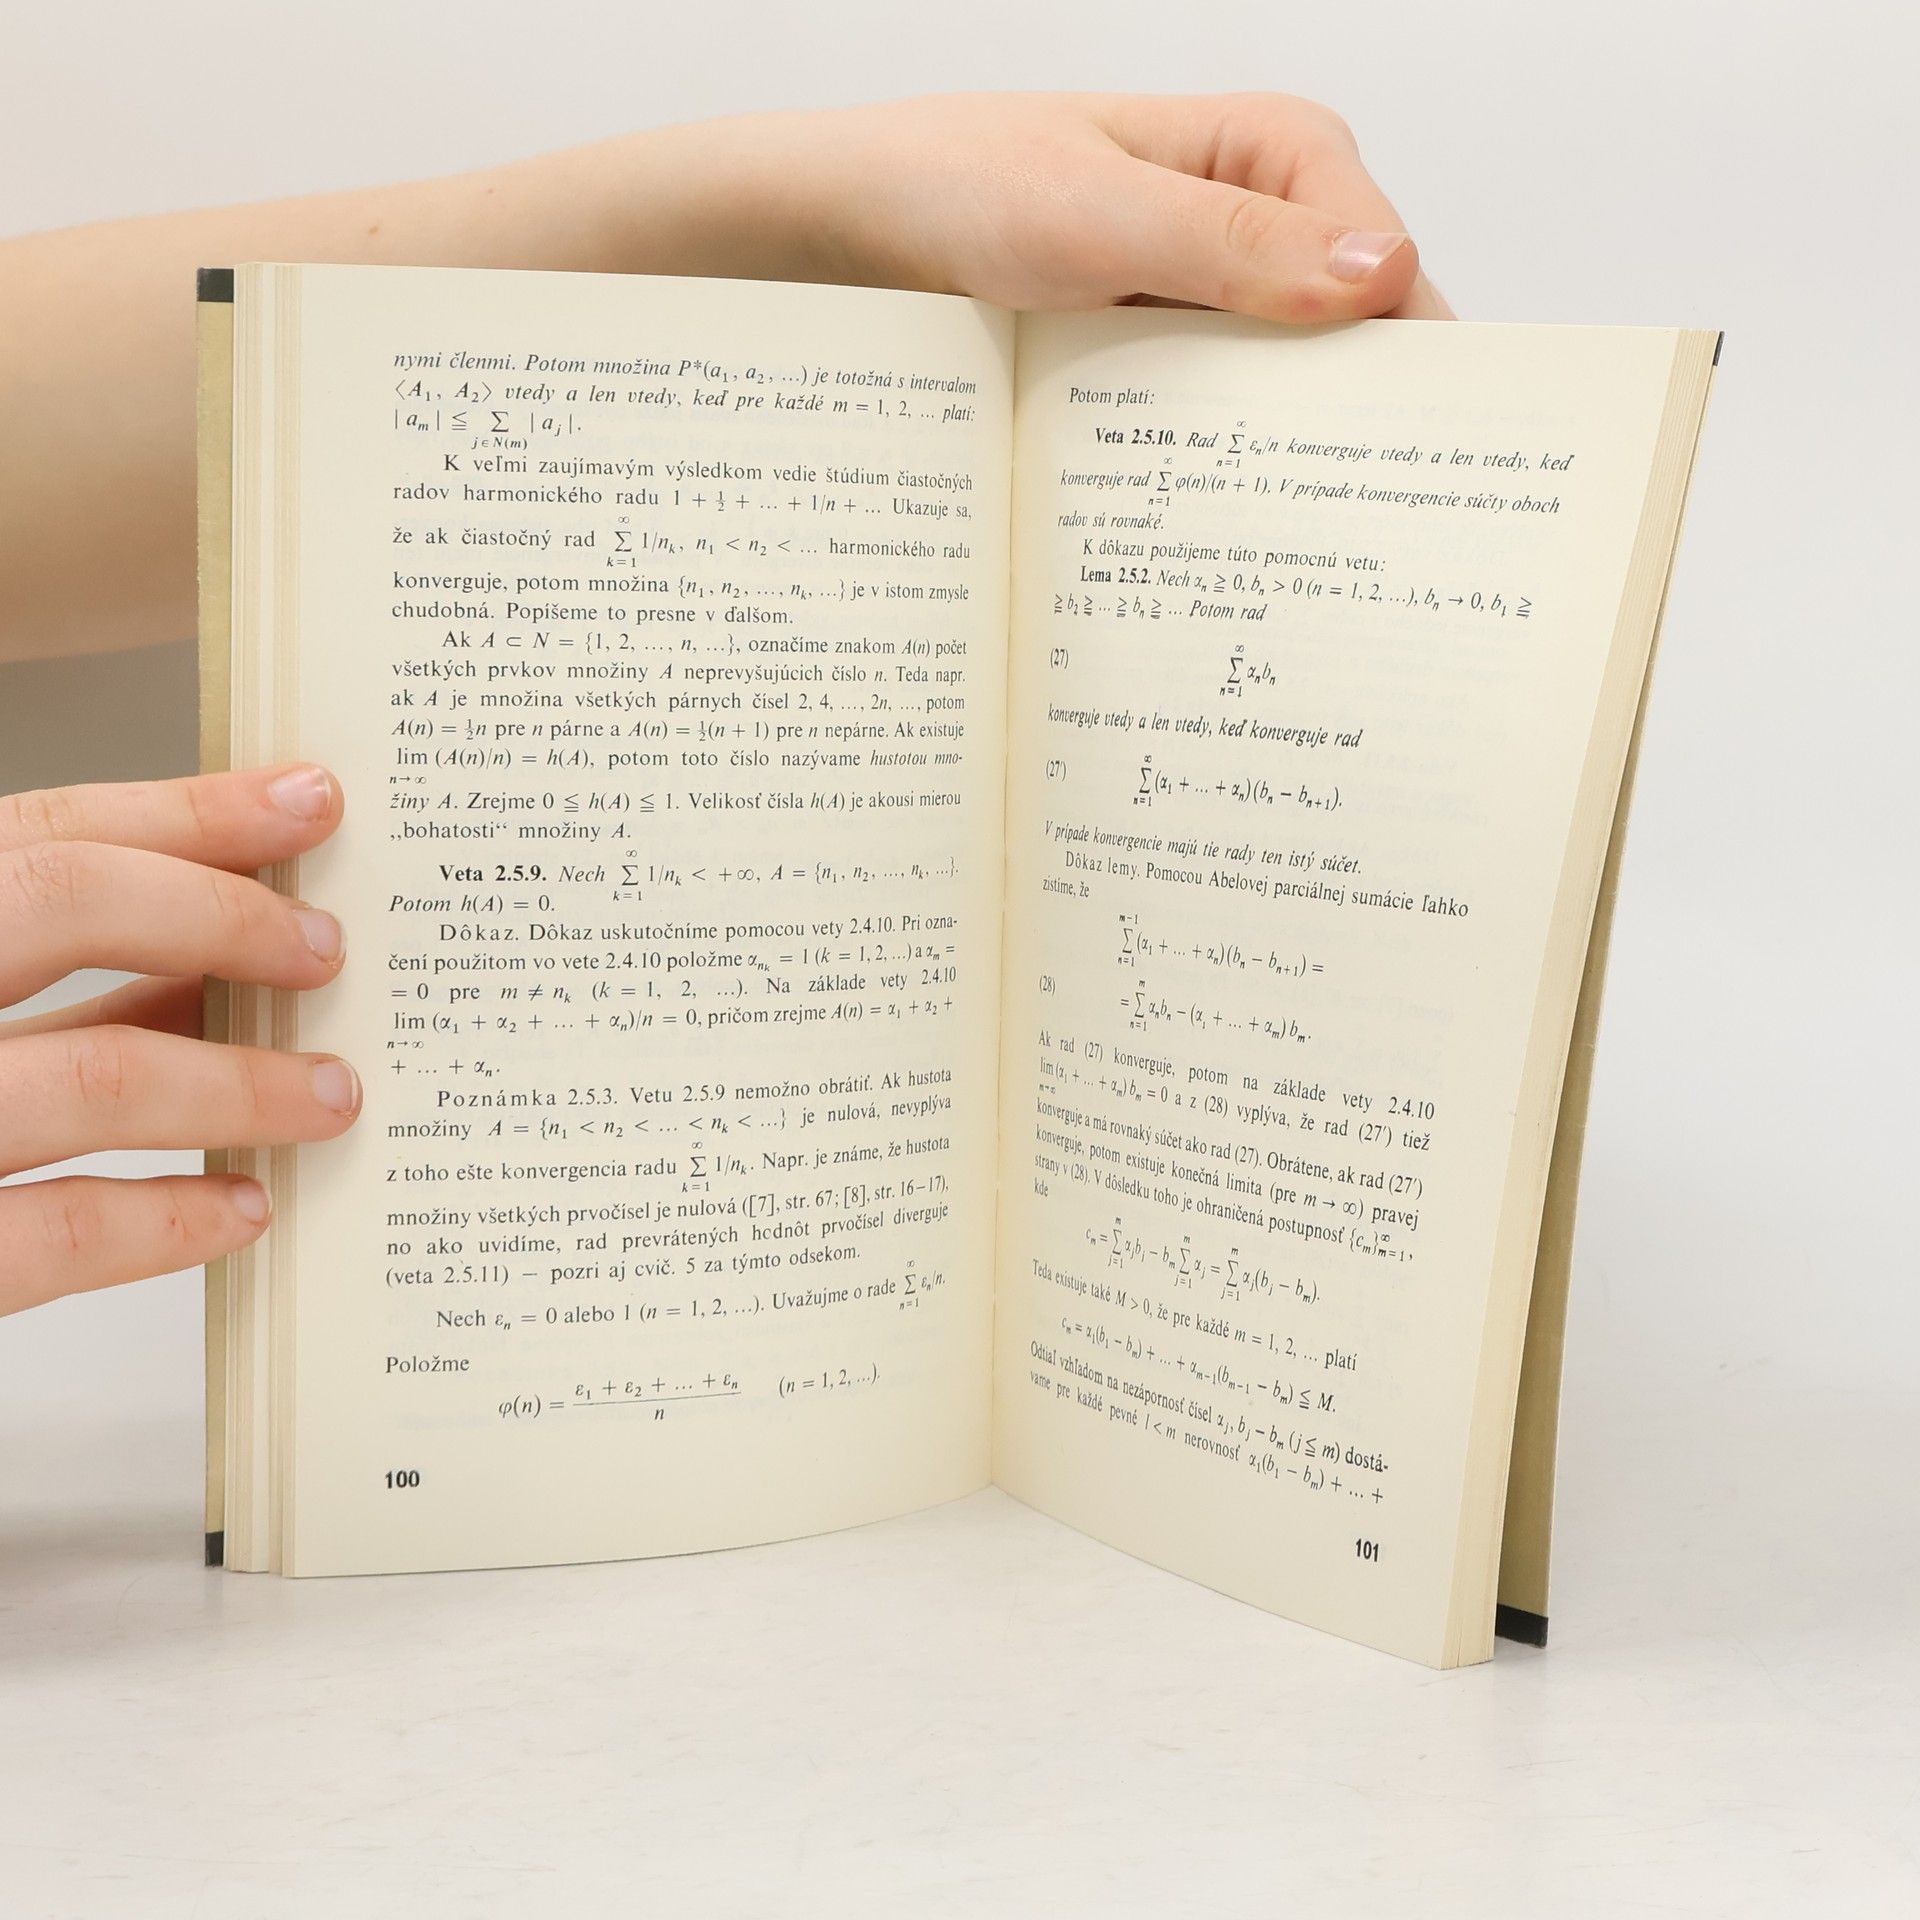 nymi členmi. Potom množina P*(a₁, a₂, ...) je totožná s intervalom
⟨A₁, A₂⟩ vtedy a len vtedy, keď pre každé m = 1, 2, ... platí:
| aₘ | ≦ ∑_{j∈N(m)} | aⱼ |.
K veľmi zaujímavým výsledkom vedie štúdium čiastočných
radov harmonického radu 1 + ½ + ... + 1/n + ... Ukazuje sa,
že ak čiastočný rad ∑_{k=1}^{∞} 1/n_k, n₁ < n₂ < ... harmonického radu
konverguje, potom množina {n₁, n₂, ..., n_k, ...} je v istom zmysle
chudobná. Popíšeme to presne v ďalšom.
Ak A ⊂ N = {1, 2, ..., n, ...}, označíme znakom A(n) počet
všetkých prvkov množiny A neprevyšujúcich číslo n. Teda napr.
ak A je množina všetkých párnych čísel 2, 4, ..., 2n, ..., potom
A(n) = ½n pre n párne a A(n) = ½(n + 1) pre n nepárne. Ak existuje
lim_{n→∞} (A(n)/n) = h(A), potom toto číslo nazývame hustotou mno-
žiny A. Zrejme 0 ≦ h(A) ≦ 1. Velikosť čísla h(A) je akousi mierou
„bohatosti“ množiny A.
Veta 2.5.9. Nech ∑_{k=1}^{∞} 1/n_k < +∞, A = {n₁, n₂, ..., n_k, ...}.
Potom h(A) = 0.
Dôkaz. Dôkaz uskutočníme pomocou vety 2.4.10. Pri ozna-
čení použitom vo vete 2.4.10 položme α_{n_k} = 1 (k = 1, 2, ...) a αₘ =
= 0 pre m ≠ n_k (k = 1, 2, ...). Na základe vety 2.4.10
lim_{n→∞} (α₁ + α₂ + ... + αₙ)/n = 0, pričom zrejme A(n) = α₁ + α₂ +
+ ... + αₙ.
Poznámka 2.5.3. Vetu 2.5.9 nemožno obrátiť. Ak hustota
množiny A = {n₁ < n₂ < ... < n_k < ...} je nulová, nevyplýva
z toho ešte konvergencia radu ∑_{k=1}^{∞} 1/n_k. Napr. je známe, že hustota
množiny všetkých prvočísel je nulová ([7], str. 67; [8], str. 16–17),
no ako uvidíme, rad prevrátených hodnôt prvočísel diverguje
(veta 2.5.11) — pozri aj cvič. 5 za týmto odsekom.
Nech εₙ = 0 alebo 1 (n = 1, 2, ...). Uvažujme o rade ∑_{n=1}^{∞} εₙ/n.
Položme
φ(n) = (ε₁ + ε₂ + ... + εₙ)/n (n = 1, 2, ...).
100
Potom platí:
Veta 2.5.10. Rad ∑_{n=1}^{∞} εₙ/n konverguje vtedy a len vtedy, keď
konverguje rad ∑_{n=1}^{∞} φ(n)/(n + 1). V prípade konvergencie súčty oboch
radov sú rovnaké.
K dôkazu použijeme túto pomocnú vetu:
Lema 2.5.2. Nech αₙ ≧ 0, bₙ > 0 (n = 1, 2, ...), bₙ → 0, b₁ ≧
≧ b₂ ≧ ... ≧ bₙ ≧ ... Potom rad
(27) ∑_{n=1}^{∞} αₙbₙ
konverguje vtedy a len vtedy, keď konverguje rad
(27′) ∑_{n=1}^{∞} (α₁ + ... + αₙ)(bₙ − bₙ₊₁).
V prípade konvergencie majú tie rady ten istý súčet.
Dôkaz lemy. Pomocou Abelovej parciálnej sumácie ľahko
zistíme, že
∑_{n=1}^{m−1} (α₁ + ... + αₙ)(bₙ − bₙ₊₁) =
(28) = ∑_{n=1}^{m} αₙbₙ − (α₁ + ... + αₘ) bₘ.
Ak rad (27) konverguje, potom na základe vety 2.4.10
lim_{m→∞} (α₁ + ... + αₘ) bₘ = 0 a z (28) vyplýva, že rad (27′) tiež
konverguje a má rovnaký súčet ako rad (27). Obrátene, ak rad (27′)
konverguje, potom existuje konečná limita (pre m → ∞) pravej
strany v (28). V dôsledku toho je ohraničená postupnosť {cₘ}_{m=1}^{∞},
kde
cₘ = ∑_{j=1}^{m} αⱼbⱼ − bₘ ∑_{j=1}^{m} αⱼ = ∑_{j=1}^{m} αⱼ(bⱼ − bₘ).
Teda existuje také M > 0, že pre každé m = 1, 2, ... platí
cₘ = α₁(b₁ − bₘ) + ... + αₘ₋₁(bₘ₋₁ − bₘ) ≦ M.
Odtiaľ vzhľadom na nezápornosť čísel αⱼ, bⱼ − bₘ (j ≦ m) dostá-
vame pre každé pevné l < m nerovnosť α₁(b₁ − bₘ) + ... +
101